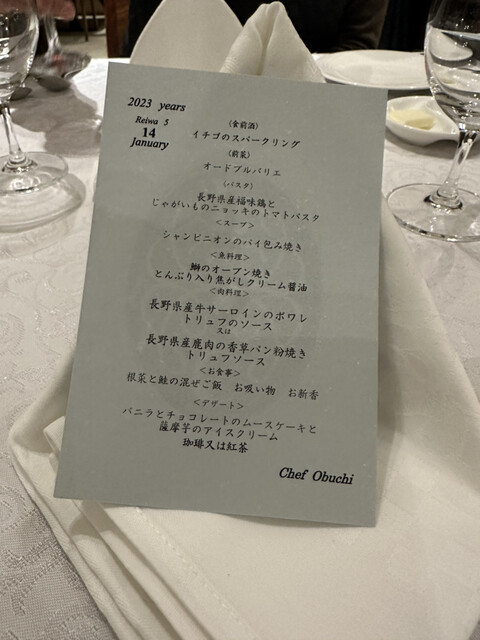 2023 years
Reiwa 5
14
January
(食前酒)
イチゴのスパークリング
(前菜)
オードブルバリエ
(パスタ)
長野県産福味鶏と
じゃがいものニョッキのトマトパスタ
<スープ>
シャンピニオンのパイ包み焼き
<魚料理>
鰤のオーブン焼き
とんぶり入り焦がしクリーム醤油
<肉料理>
長野県産牛サーロインのポワレ
トリュフのソース
又は
長野県産鹿肉の香草パン粉焼き
トリュフソース
<お食事>
根菜と鮭の混ぜご飯 お吸い物 お新香
<デザート>
バニラとチョコレートのムースケーキと
薩摩芋のアイスクリーム
珈琲又は紅茶
Chef Obuchi